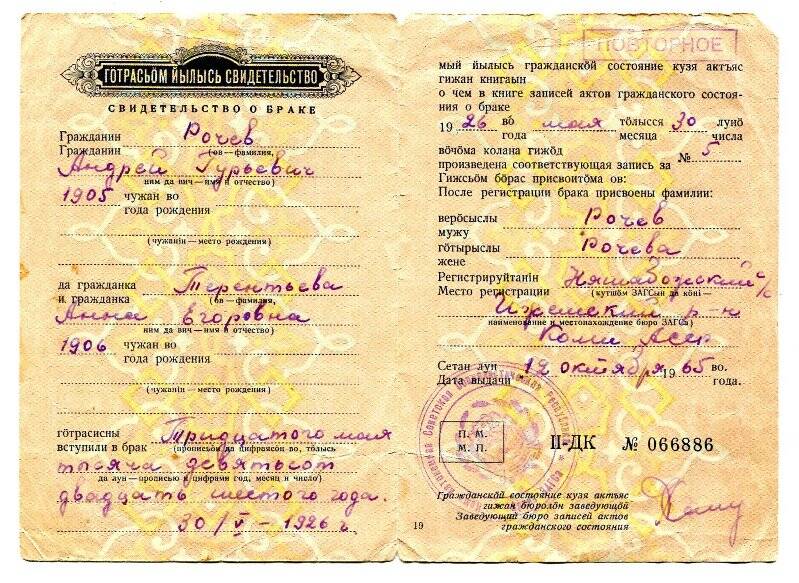 ГОТРАСЬӦМ ЙЫЛЫСЬ СВИДЕТЕЛЬСТВО
СВИДЕТЕЛЬСТВО О БРАКЕ
Гражданин Рочев
Гражданин (ов—фамилия,
Андрей Гурьевич
ним да вич—имя и отчество)
1905 чужан во
года рождения
(чужанін—место рождения)
да гражданка Терентьева
и гражданка (ов—фамилия,
Анна Егоровна
ним да вич—имя и отчество)
1906 чужан во
года рождения
(чужанін—место рождения)
гӧтрасисны Тридцатого мая
вступили в брак (прописьӧн да цифраясӧн во, тӧлысь
тысяча девятьсот
да лун—прописью и цифрами год, месяц и число)
двадцать шестого года.
30/V—1926 г
ПОВТОРНОЕ
мый йылысь гражданскӧй состояние кузя актъяс
гижан книгаын
о чем в книге записей актов гражданского состоя-
ния о браке
1926 вӧ мая тӧлысся 30 лунӧ
года месяца числа
вӧчӧма колана гижӧд № 5
произведена соответствующая запись за
Гижсьӧм бӧрас присвоитӧма ов:
После регистрации брака присвоены фамилии:
верӧсыслы Рочев
мужу
гӧтырыслы Рочева
жене
Регистрируйтанін Няшабожский с/с
Место регистрации (кутшӧм ЗАГСын да кӧні—
Ижемский р-н
наименование и местонахождение бюро ЗАГСа)
Коми Асср
Сетан лун 12 октября 1965 во.
Дата выдачи года.
П. М.
М. П.
II-ДК № 066886
Гражданскӧй состояние кузя актъяс
гижан бюролӧн заведующӧй
Заведующий бюро записей актов
гражданского состояния
19